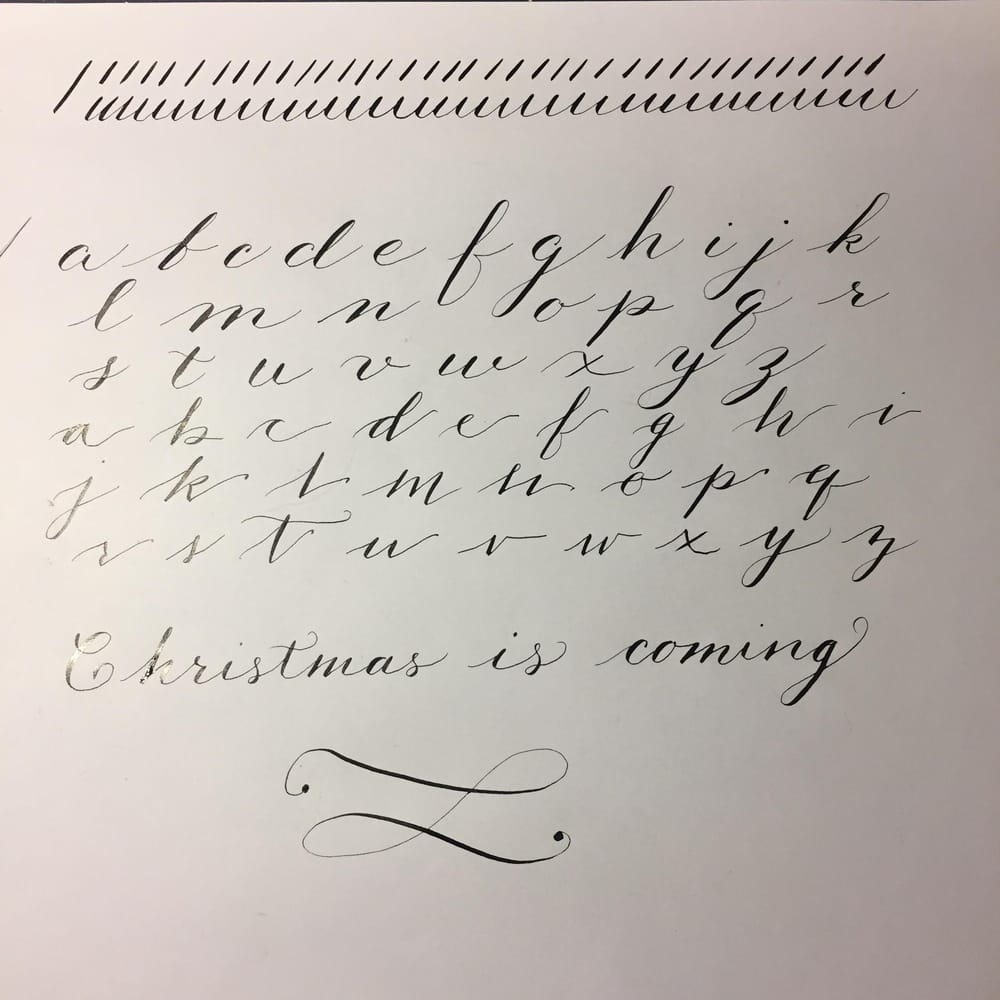 a b c d e f g h i j k
l m n o p q r
s t u v w x y z
a b c d e f g h i
j k l m n o p q
r s t u v w x y z
Christmas is coming